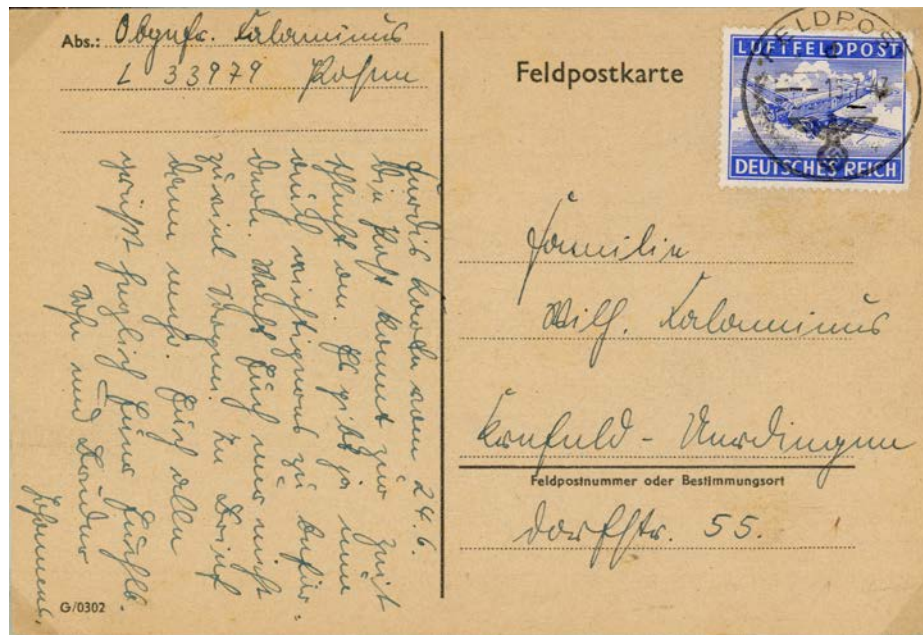 Abs.: Kalaminus
L 33979 Posen
Feldpostkarte
FELDPOST
LUFTFELDPOST
DEUTSCHES REICH
Familie
Wilh. Kalaminus
Krefeld - Uerdingen
Feldpostnummer oder Bestimmungsort
Dorfstr. 55.
Karte vom 24.6.
Die Post kommt zur Zeit
schlecht an. Es gibt ja nun
auch wichtigeres zu beför-
dern. Macht Euch nur nicht
zuviel Sorgen. Brief
dann mehr. Euch allen
grüßt herzlich Euer
Sohn und Bruder
Johannes.
G/0302